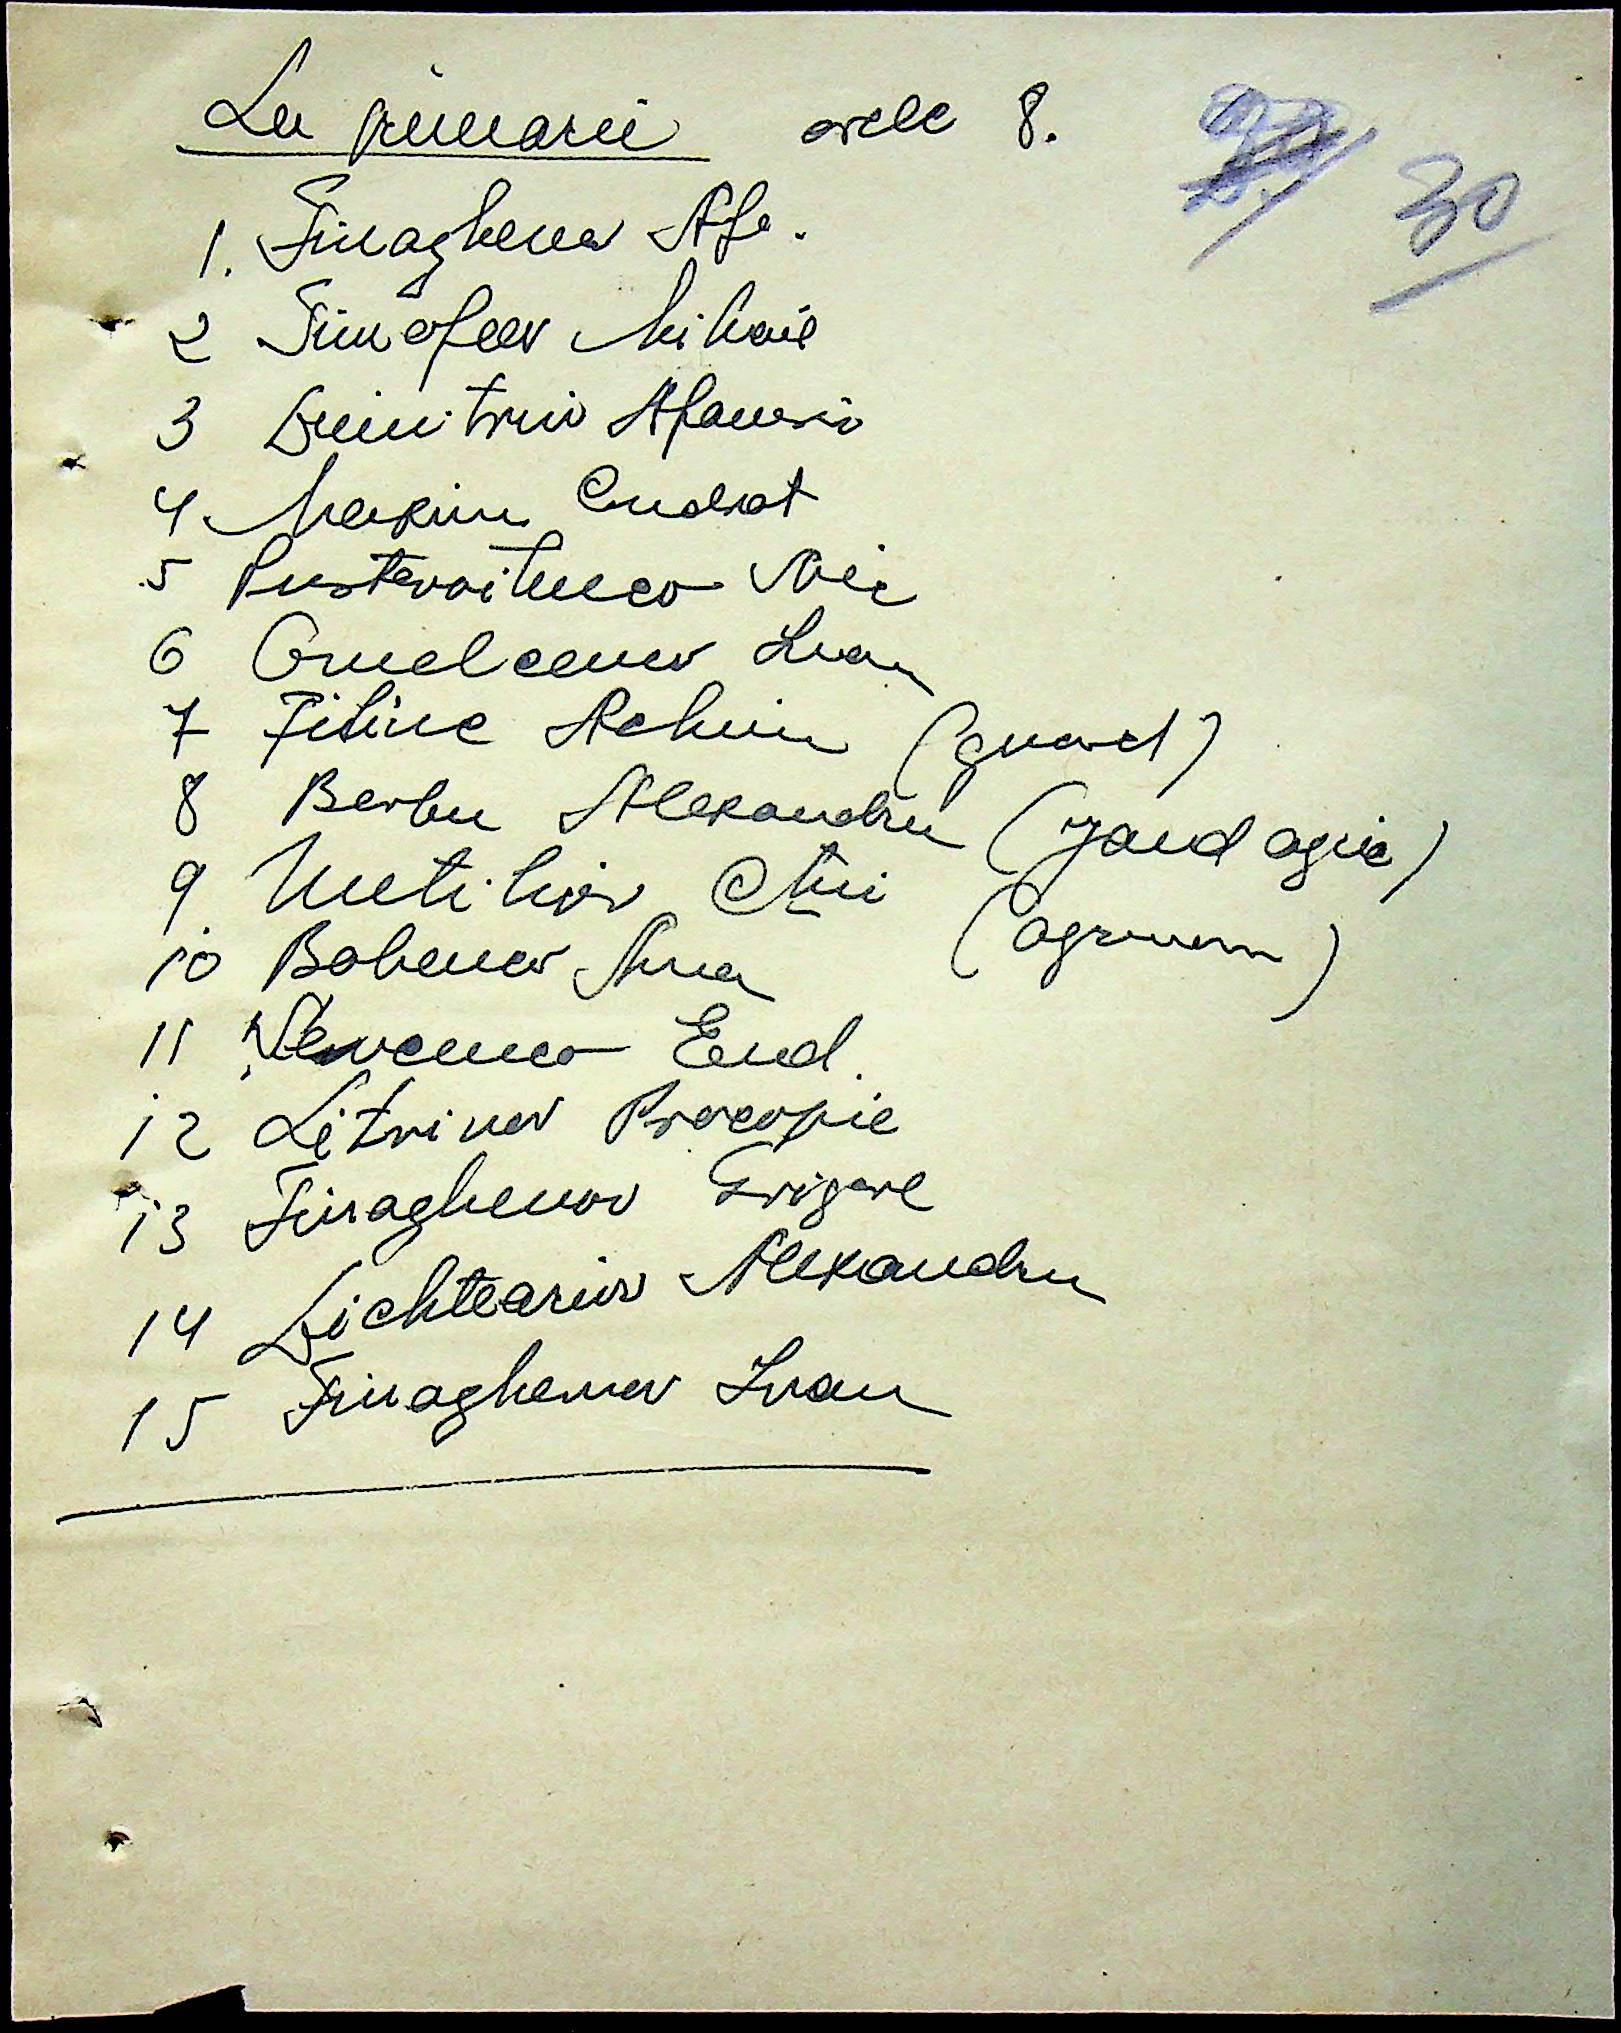 La primarie orele 8.
30
1. Finaghenov Afa.
2 Timofeev Mihail
3 Dimitriu Afanasiv
4 Maxim Cudrat
5 Pustovoitenco Nic
6 Omelcenco Ivan
7 Achim (guard)
8 Barbu Alexandru (jand agric)
9 (agronom)
10 Bobenco Ana
11 Eud.
12 Litvinov Procopie
13 Finaghenov Grigore
14 Dichteariov Alexandru
15 Finaghenov Ivan